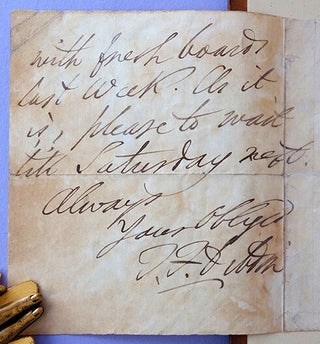 with fresh boards
last week. As it
is, please to wait
till Saturday next.
Always
Your Obliged
T. F. Dibdin